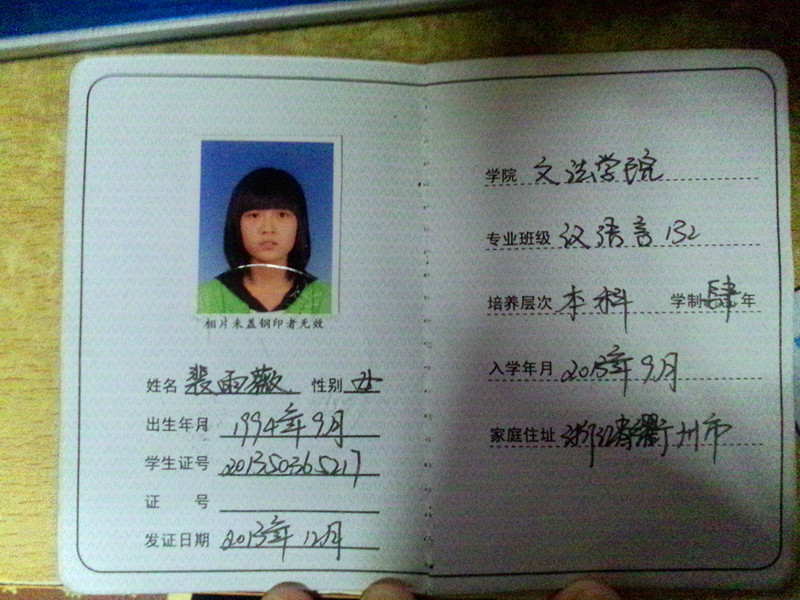 相片未盖钢印者无效
姓名 裴雨薇 性别 女
出生年月 1994年9月
学生证号 201350365217
证 号
发证日期 2013年12月
学院 文法学院
专业班级 汉语言132
培养层次 本科 学制 肆 年
入学年月 2013年9月
家庭住址 浙江省衢州市